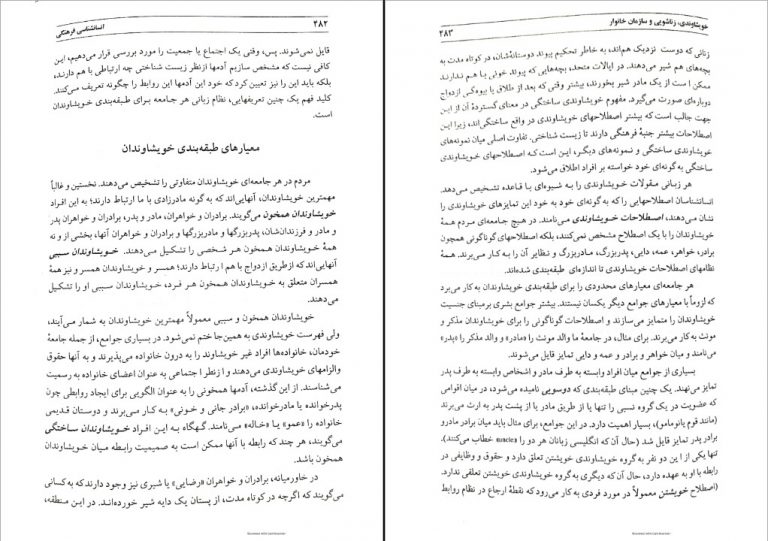 انسانشناسی فرهنگی
قایل نمی‌شوند. پس، وقتی یک اجتماع یا جمعیت را مورد بررسی قرار می‌دهیم، این
کافی نیست که مشخص سازیم آدمها از نظر زیست شناختی چه ارتباطی با هم دارند،
بلکه باید این را نیز تعیین کرد که خود این آدمها این روابط را چگونه تعریف می‌کنند.
کلید فهم یک چنین تعریفهایی، نظام زبانی هر جامعه برای طبقه‌بندی خویشاوندان
است.
معیارهای طبقه‌بندی خویشاوندان
مردم در هر جامعه‌ای خویشاوندان متفاوتی را تشخیص می‌دهند. نخستین و غالباً
مهمترین خویشاوندان، آنهایی‌اند که به گونه مادرزادی با ما ارتباط دارند؛ به این افراد
خویشاوندان همخون می‌گویند. برادران و خواهران، مادر و پدر، برادران و خواهران پدر
و مادر و فرزندان‌شان، پدربزرگها و مادربزرگها و برادران و خواهران آنها، بخشی از و نه
همهٔ خویشاوندان همخون هر شخصی را تشکیل می‌دهند. خویشاوندان سببی
آنهایی‌اند که از طریق ازدواج با هم ارتباط دارند؛ همسر و خویشاوندان همسر و نیز همهٔ
همسران متعلق به خویشاوندان همخون هر فرد، خویشاوندان سببی او را تشکیل
می‌دهند.
خویشاوندان همخون و سببی معمولاً مهمترین خویشاوندان به شمار می‌آیند،
ولی فهرست خویشاوندی به همین‌جا ختم نمی‌شود. در بسیاری جوامع، از جمله جامعهٔ
خودمان، خانواده‌ها افراد غیر خویشاوند را به درون خانواده می‌پذیرند و به آنها حقوق
والزامهای خویشاوندی می‌دهند و از نظر اجتماعی به عنوان اعضای خانواده به رسمیت
می‌شناسند. از این گذشته، آدمها همخونی را به عنوان الگویی برای ایجاد روابطی چون
پدرخوانده یا مادرخوانده، «برادر جانی و خونی» به کار می‌برند و دوستان قدیمی
خانواده را «عمو» یا «خاله» می‌نامند. گهگاه به این افراد خویشاوندان ساختگی
می‌گویند، هر چند که رابطه با آنها ممکن است به صمیمیت رابطه میان خویشاوندان
همخون باشد.
در خاورمیانه، برادران و خواهران «رضایی» یا شیری نیز وجود دارند که به کسانی
می‌گویند که اگرچه در کوتاه مدت، از پستان یک دایه شیر خورده‌اند. در این منطقه،
خویشاوندی، زناشویی و سازمان خانوار
زنانی که دوست نزدیک هم‌اند، به خاطر تحکیم پیوند دوستانه‌شان، در کوتاه مدت به
بچه‌های هم شیر می‌دهند. در ایالات متحد، بچه‌هایی که پیوند خونی با هم ندارند
ممکن است از یک مادر شیر بخورند، بیشتر وقتی که بعد از طلاق یا بیوگی ازدواج
دوباره‌ای صورت می‌گیرد. مفهوم خویشاوندی ساختگی در معنای گستردهٔ آن از این
جهت جالب است که بیشتر اصطلاحهای خویشاوندی در واقع ساختگی‌اند، زیرا این
اصطلاحات بیشتر جنبهٔ فرهنگی دارند تا زیست شناختی. تفاوت اصلی میان نمونه‌های
خویشاوندی ساختگی و نمونه‌های دیگر، این است که اصطلاحهای خویشاوندی
ساختگی به گونه‌ای خود خواسته بر افراد اطلاق می‌شود.
هر زبانی مقولات خویشاوندی را به شیوه‌ای با قاعده تشخیص می‌دهد.
انسانشناسان اصطلاحهایی را که به گونه‌ای خود به خود این تمایزهای خویشاوندی را
نشان می‌دهند، اصطلاحات خویشاوندی می‌نامند. در هیچ جامعه‌ای مردم همهٔ
خویشاوندان را با یک اصطلاح مشخص نمی‌کنند، بلکه اصطلاحهای گوناگونی همچون
برادر، خواهر، عمه، دایی، پدربزرگ، مادربزرگ و نظایر آن را به کار می‌برند. همهٔ
نظامهای اصطلاحات خویشاوندی تا اندازه‌ای طبقه‌بندی شده‌اند.
هر جامعه‌ای معیارهای محدودی را برای طبقه‌بندی خویشاوندان به کار می‌برد
که لزوماً با معیارهای جوامع دیگر یکسان نیستند. بیشتر جوامع بشری بر مبنای جنسیت
خویشاوندان را متمایز می‌سازند و اصطلاحات گوناگونی را برای خویشاوندان مذکر و
مونث به کار می‌برند. برای مثال، در جامعهٔ ما والد مونث را «مادر» و والد مذکر را «پدر»
می‌نامند و میان خواهر و برادر و عمه و دایی تمایز قایل می‌شوند.
بسیاری از جوامع میان افراد وابسته به طرف مادر و اشخاص وابسته به طرف پدر
تمایز می‌نهند. یک چنین مبنای طبقه‌بندی که دوسویی نامیده می‌شود، در میان اقوامی
که عضویت در یک گروه نسبی را تنها یا از طریق مادر یا از پشت پدر به ارث می‌برند
(مانند قوم یانومامو)، بسیار اهمیت دارد. در این جوامع، برای مثال باید میان برادر مادر و
برادر پدر تمایز قایل شد (حال آن که انگلیسی زبانان هر دو را uncle خطاب می‌کنند).
تنها یکی از این دو نفر به گروه خویشاوندی خویشتن تعلق دارد و حقوق و وظایفی در
رابطه با او به عهده دارد، حال آن که دیگری به گروه خویشاوندی خویشتن تعلقی ندارد.
(اصطلاح خویشتن معمولاً در مورد فردی به کار می‌رود که نقطهٔ ارجاع در نظام روابط